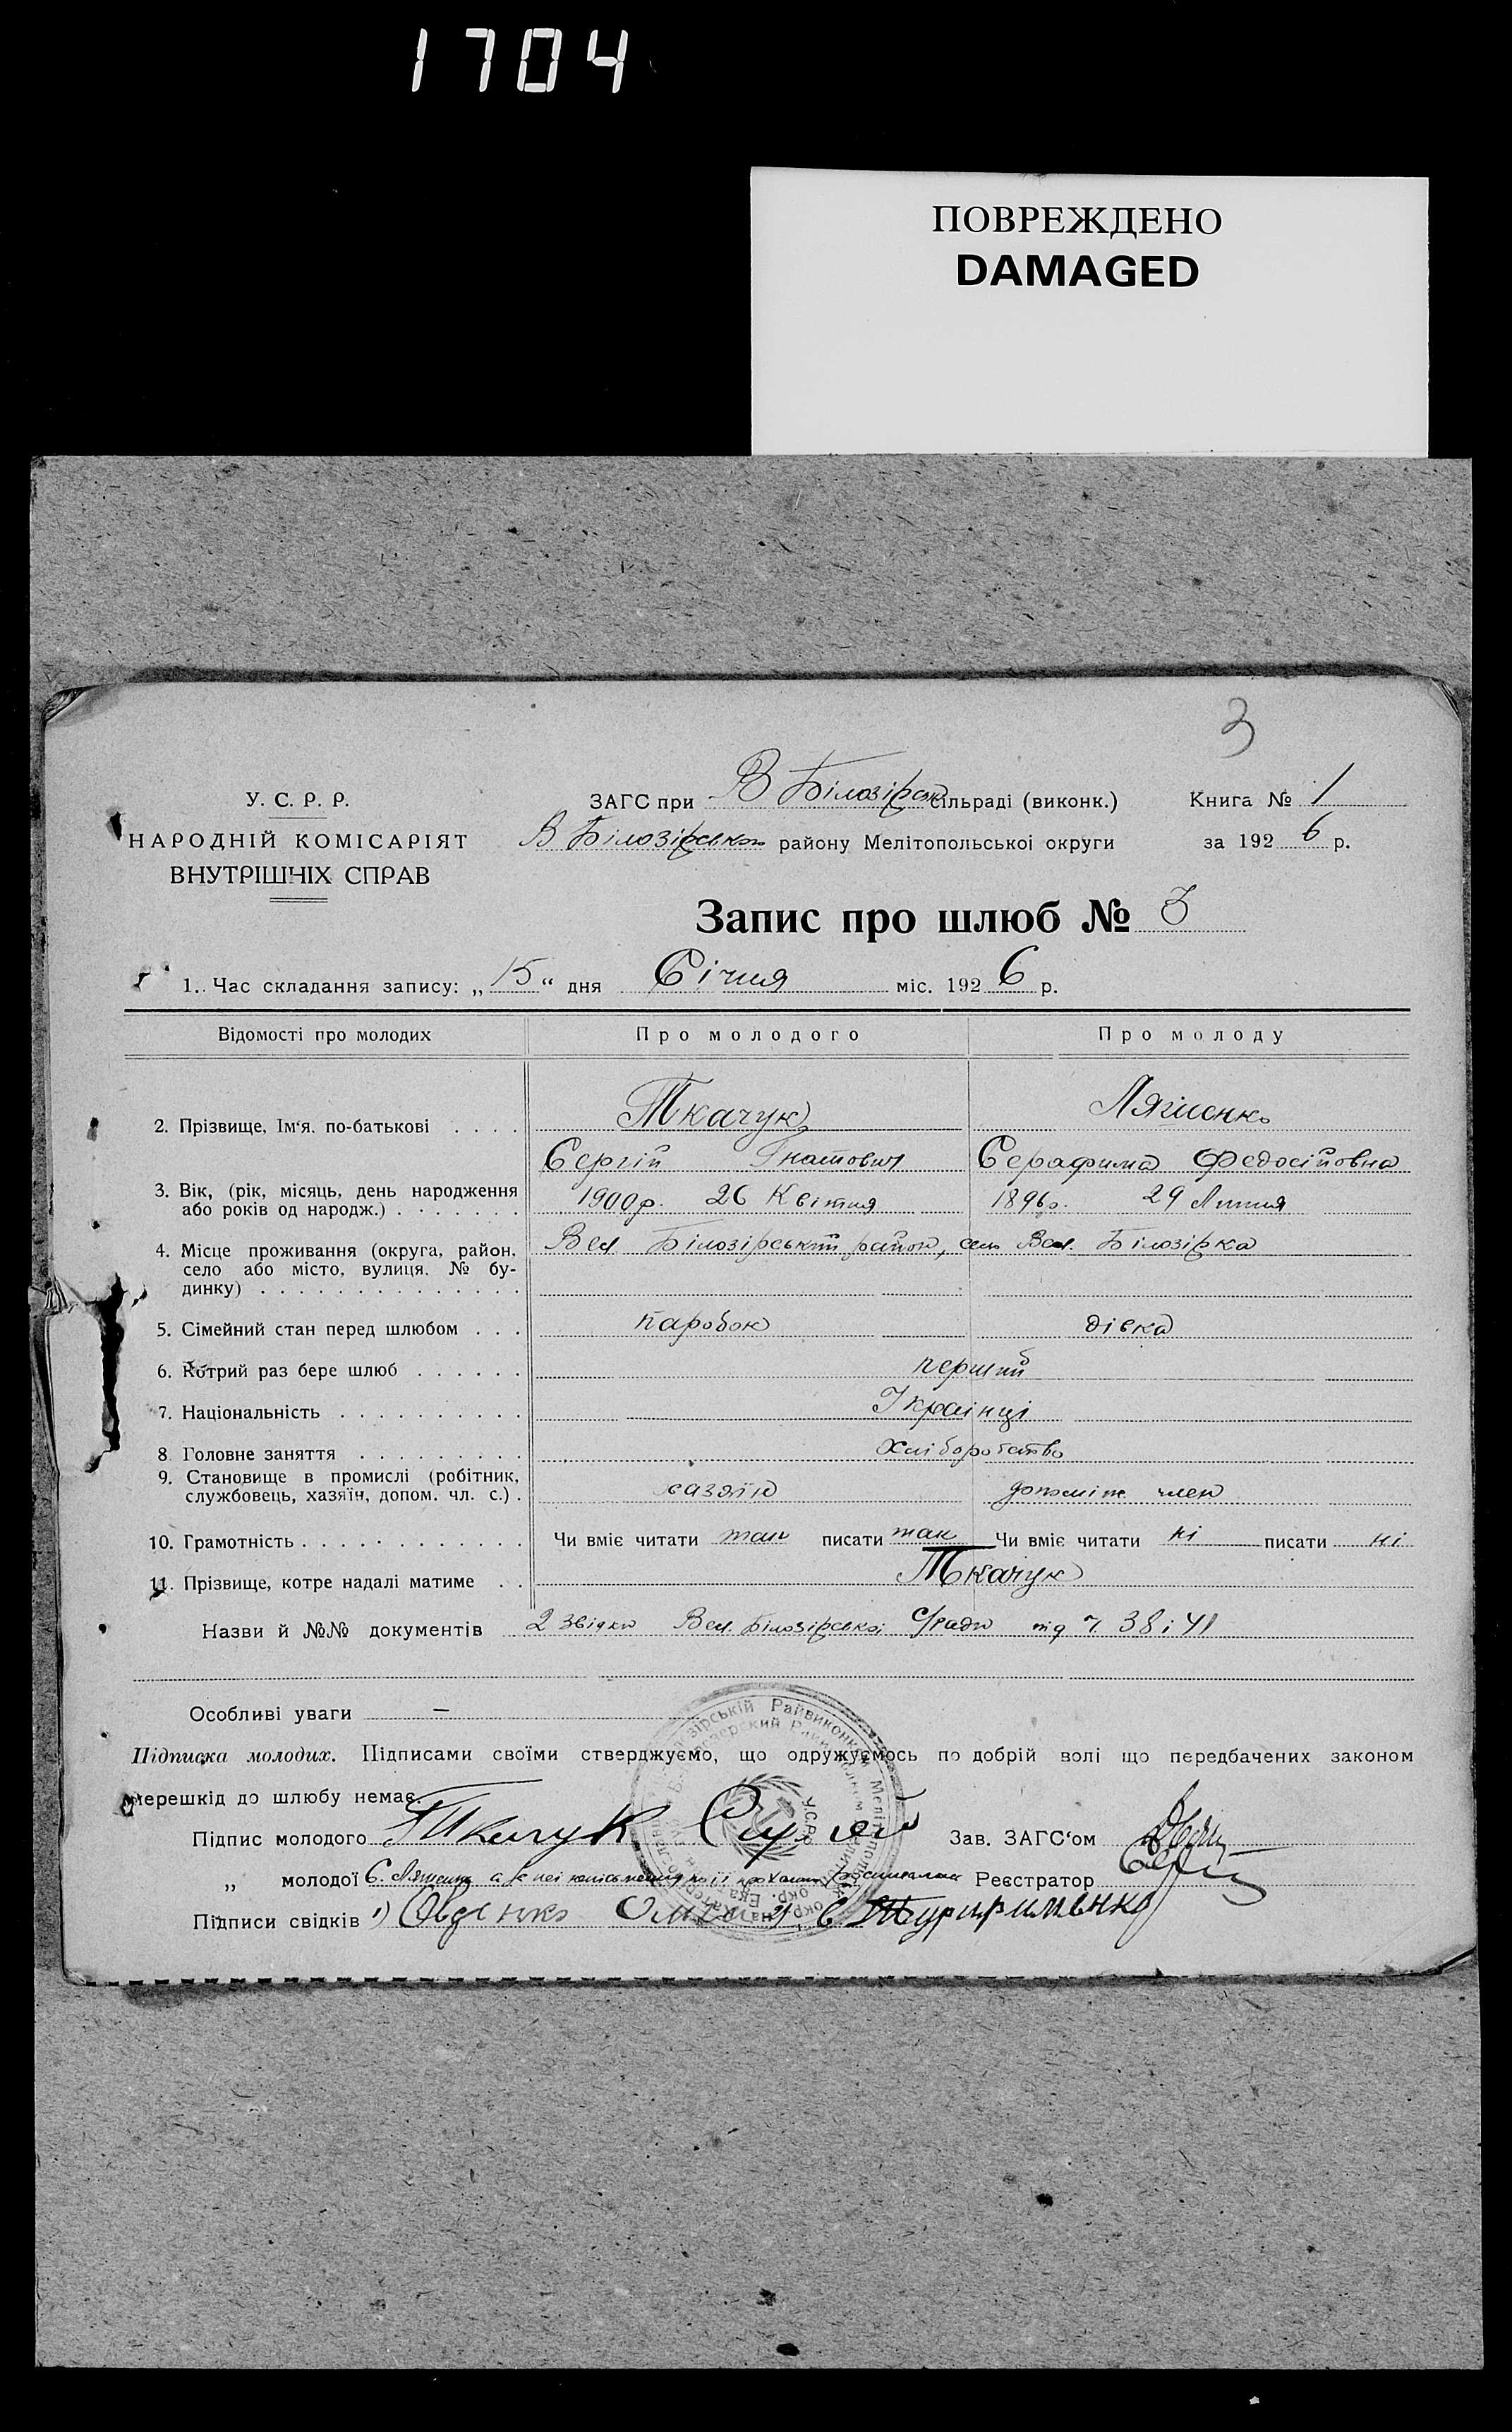 1704
ПОВРЕЖДЕНО
DAMAGED
3
У. С. Р. Р.
НАРОДНІЙ КОМІСАРІЯТ
ВНУТРІШНІХ СПРАВ
ЗАГС при В Білозірск сільраді (виконк.)
В Білозірськ району Мелітопольської округи
Книга № 1
за 1926 р.
Запис про шлюб № 3
1. Час складання запису: „15“ дня Січня міс. 1926 р.
Відомості про молодих Про молодого Про молоду
2. Прізвище, Ім‘я, по-батькові . . . . Ткачук Ляшенко
Сергій Гнатович Серафима Федосіївна
3. Вік, (рік, місяць, день народження або років од народж.) . . . . . . . 1900р. 26 Квітня 1896р. 29 Липня
4. Місце проживання (округа, район, Вел Білозірський район, село Вел. Білозірка
село або місто, вулиця, № бу-
динку) . . . . . . . . . . . . . .
5. Сімейний стан перед шлюбом . . . паробок дівка
6. Котрий раз бере шлюб . . . . . . перший
7. Національність . . . . . . . . . . Українці
8 Головне заняття . . . . . . . . . Хліборобство
9. Становище в промислі (робітник,
службовець, хазяїн, допом. чл. с.) . хазяїн допоміж член
10. Грамотність . . . . . . . . . . . . Чи вміє читати так писати так Чи вміє читати ні писати ні
11. Прізвище, котре надалі матиме . . Ткачук
Назви й №№ документів 2 звідки Вел. Білозірської С/ради під ч. 38 і 41
Особливі уваги —
Підписка молодих. Підписами своїми стверджуємо, що одружуємось по добрій волі що передбачених законом
перешкід до шлюбу немає.
Підпис молодого Ткачук Сергей Зав. ЗАГС‘ом
„ молодої С. Ляшенко а за неї неписьменну по її проханню Реєстратор
Підписи свідків 1) Овденко 2)